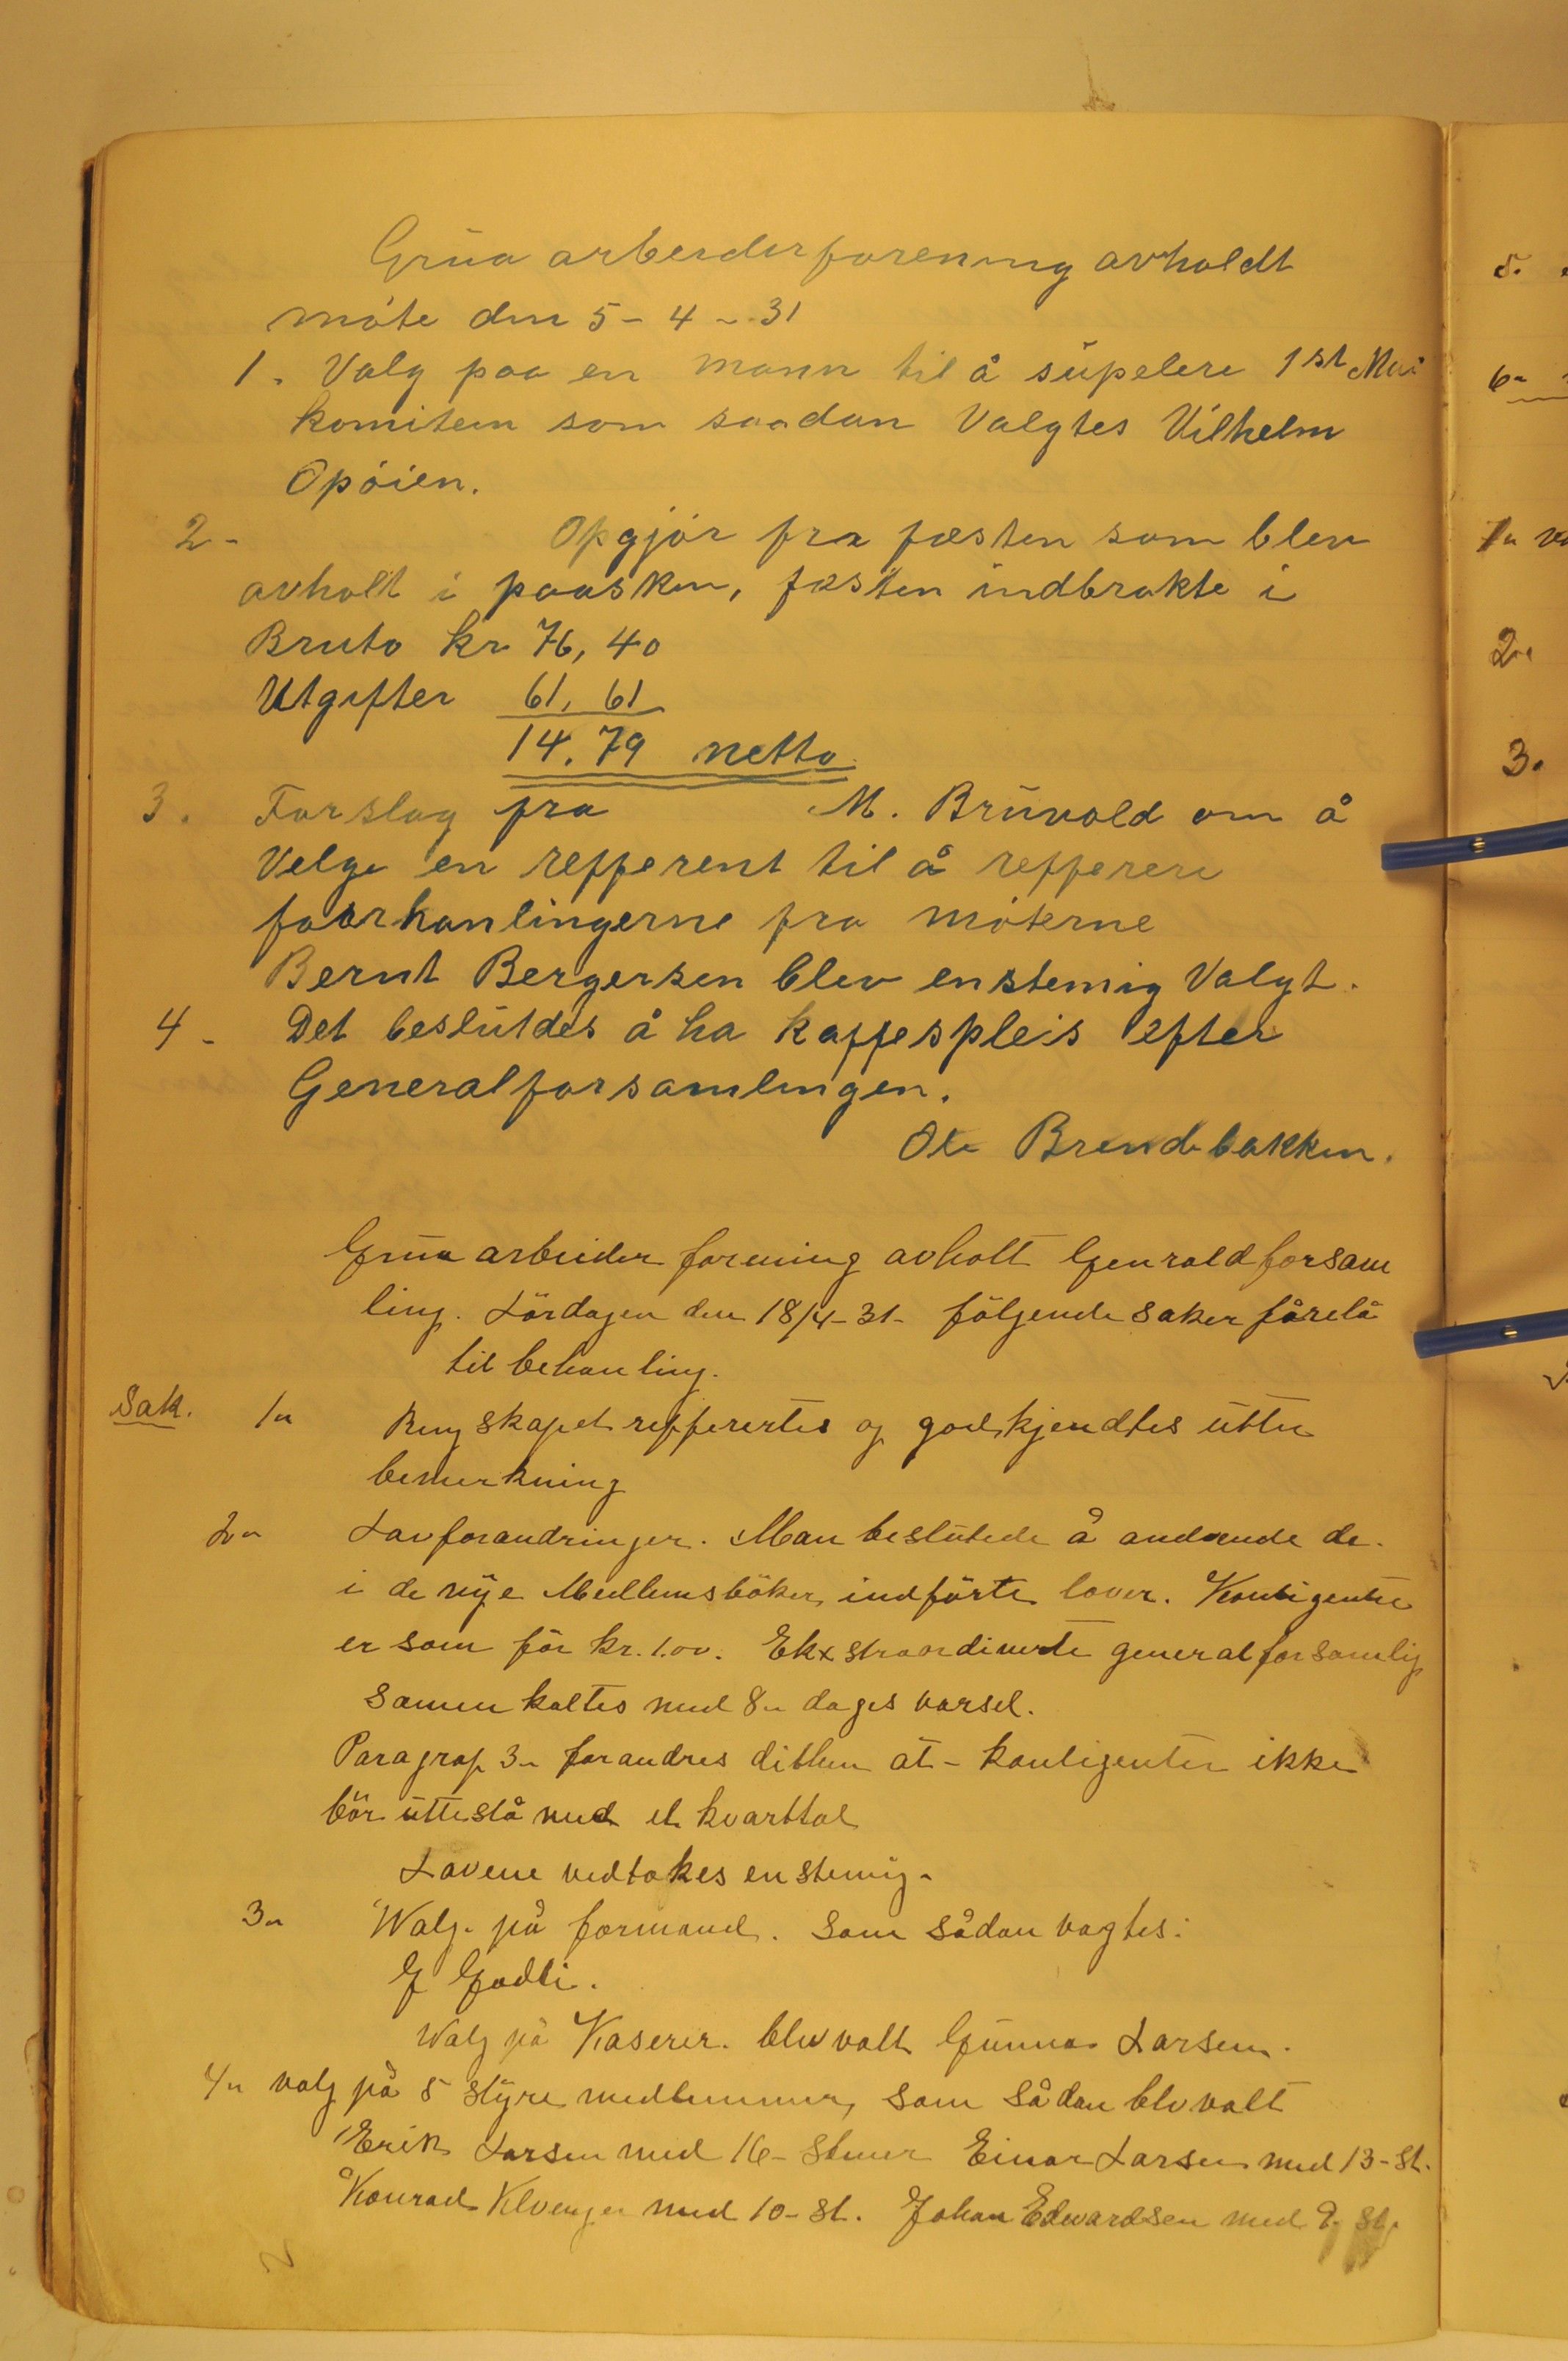 Grua arbeiderforening avholdt
møte den 5 - 4 - 31
1. Valg paa en mann til å supelere 1st Mai
komiteen som saadan Valgtes Vilhelm
Opøien.
2 - Opgjør fra fæsten som blev
avholt i paasken, fæsten indbrakte i
Bruto kr 76,40
Utgifter 61,61
14.79 netto
3. Forslag fra M. Bruvold om å
Velge en refferent til å refferere
foorhanlingerne fra møterne
Bernt Bergersen blev enstemig Valgt.
4 - Det beslutdes å ha kaffespleis efter
Generalforsamlingen.
Ole Brendbakken.
Grua arbeider forening avholt Genraldforsam
ling. Lördagen den 18/4-31- fölgende saker förelå
til behanling.
Sak. 1- Rengskapet refferertes og godkjendtes utten
bemerkning
2- Lavforandringer. Man beslutede å andvende de.
i de nye Medlemsböker indförte lover. Kontigenten
er som för kr. 1.00. Ekxstraordinerte generalforsamlig
samenkaltes med 8- dages varsel.
Paragraf 3- forandres dithen at - kontigenten ikke
bör uttestå med et kvarttal
Lavene vedtokes enstemig-
3- Walg. på formand. Som sådan vagtes:
G Godli.
Walg på Kaserer. blev valt Gunnar Larsen.
4- valg på 5 styremedlemmer, som sådan blv valt
Erik Larsen med 16- stemer Einar Larsen med 13-St.
Konrad Klvenger med 10-St. Johan Edwardsen med 9. St.
5.
6-
7-
2.
3.